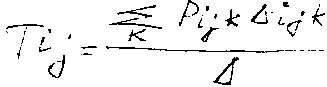 Tij = \frac{\sum_{K} Pijk Δijk}{Δ}